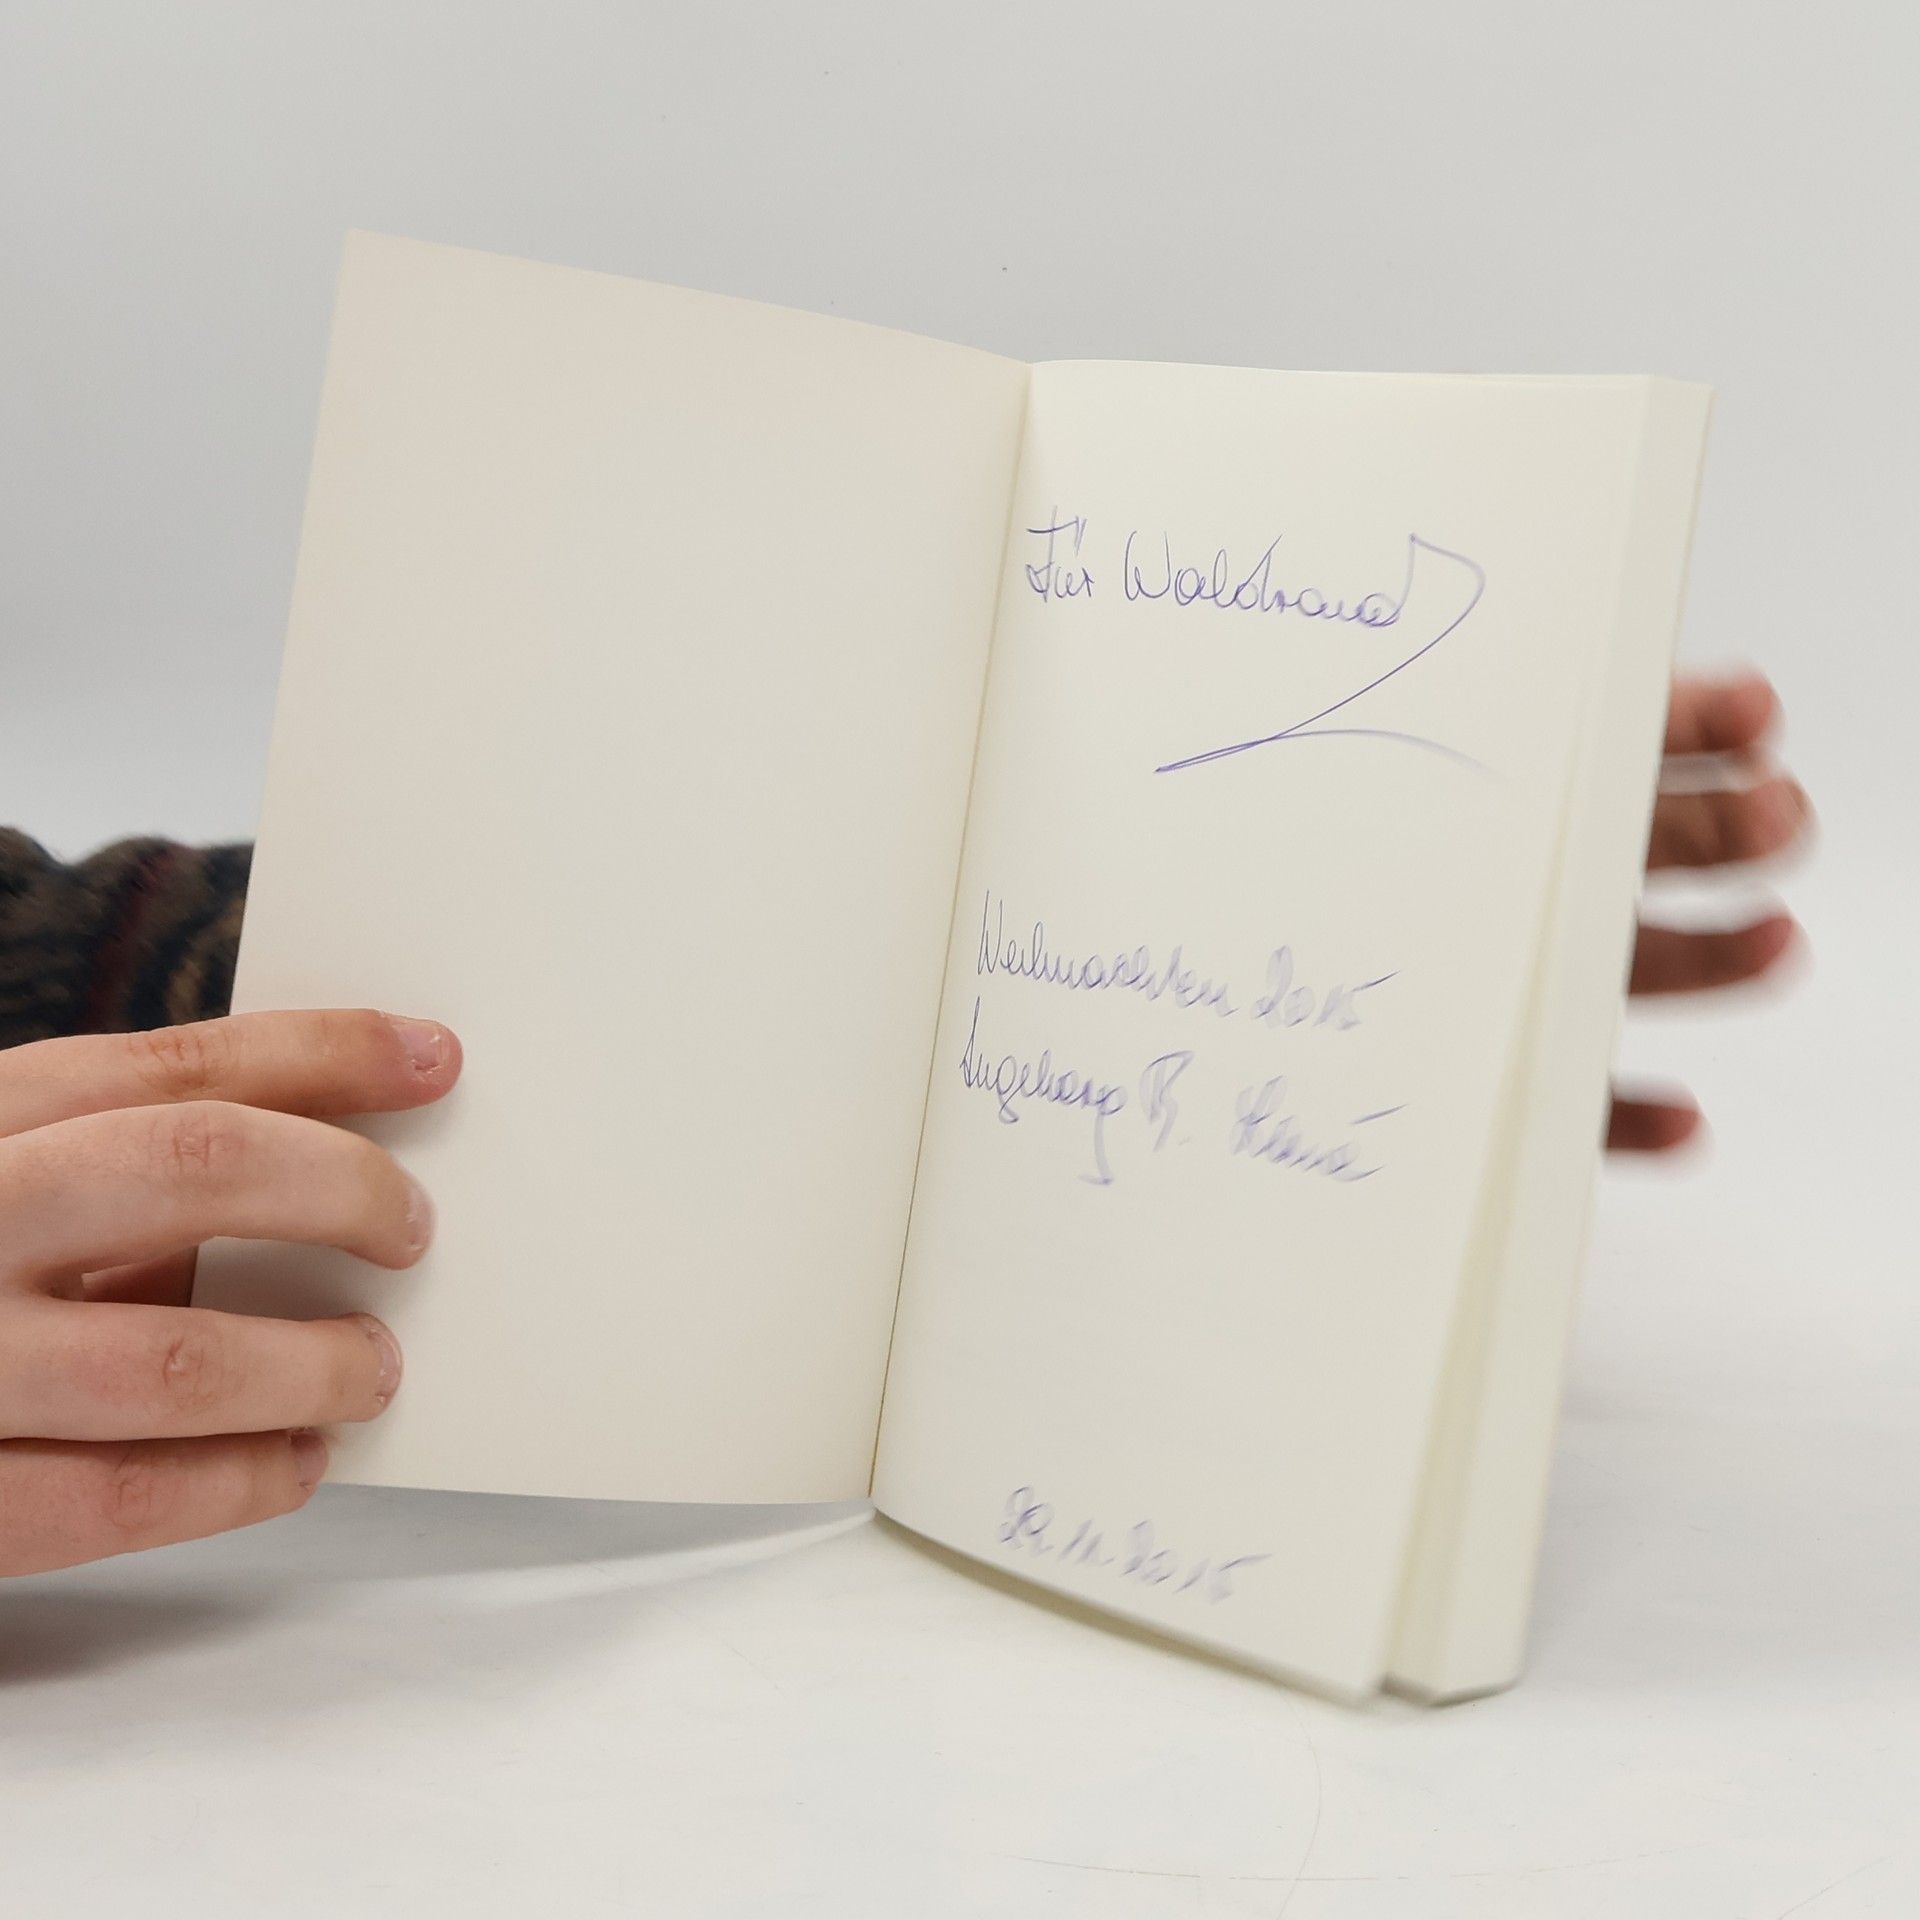 Für Waldraud
Weihnachten 2015
Ingeborg B.
29.11.2015